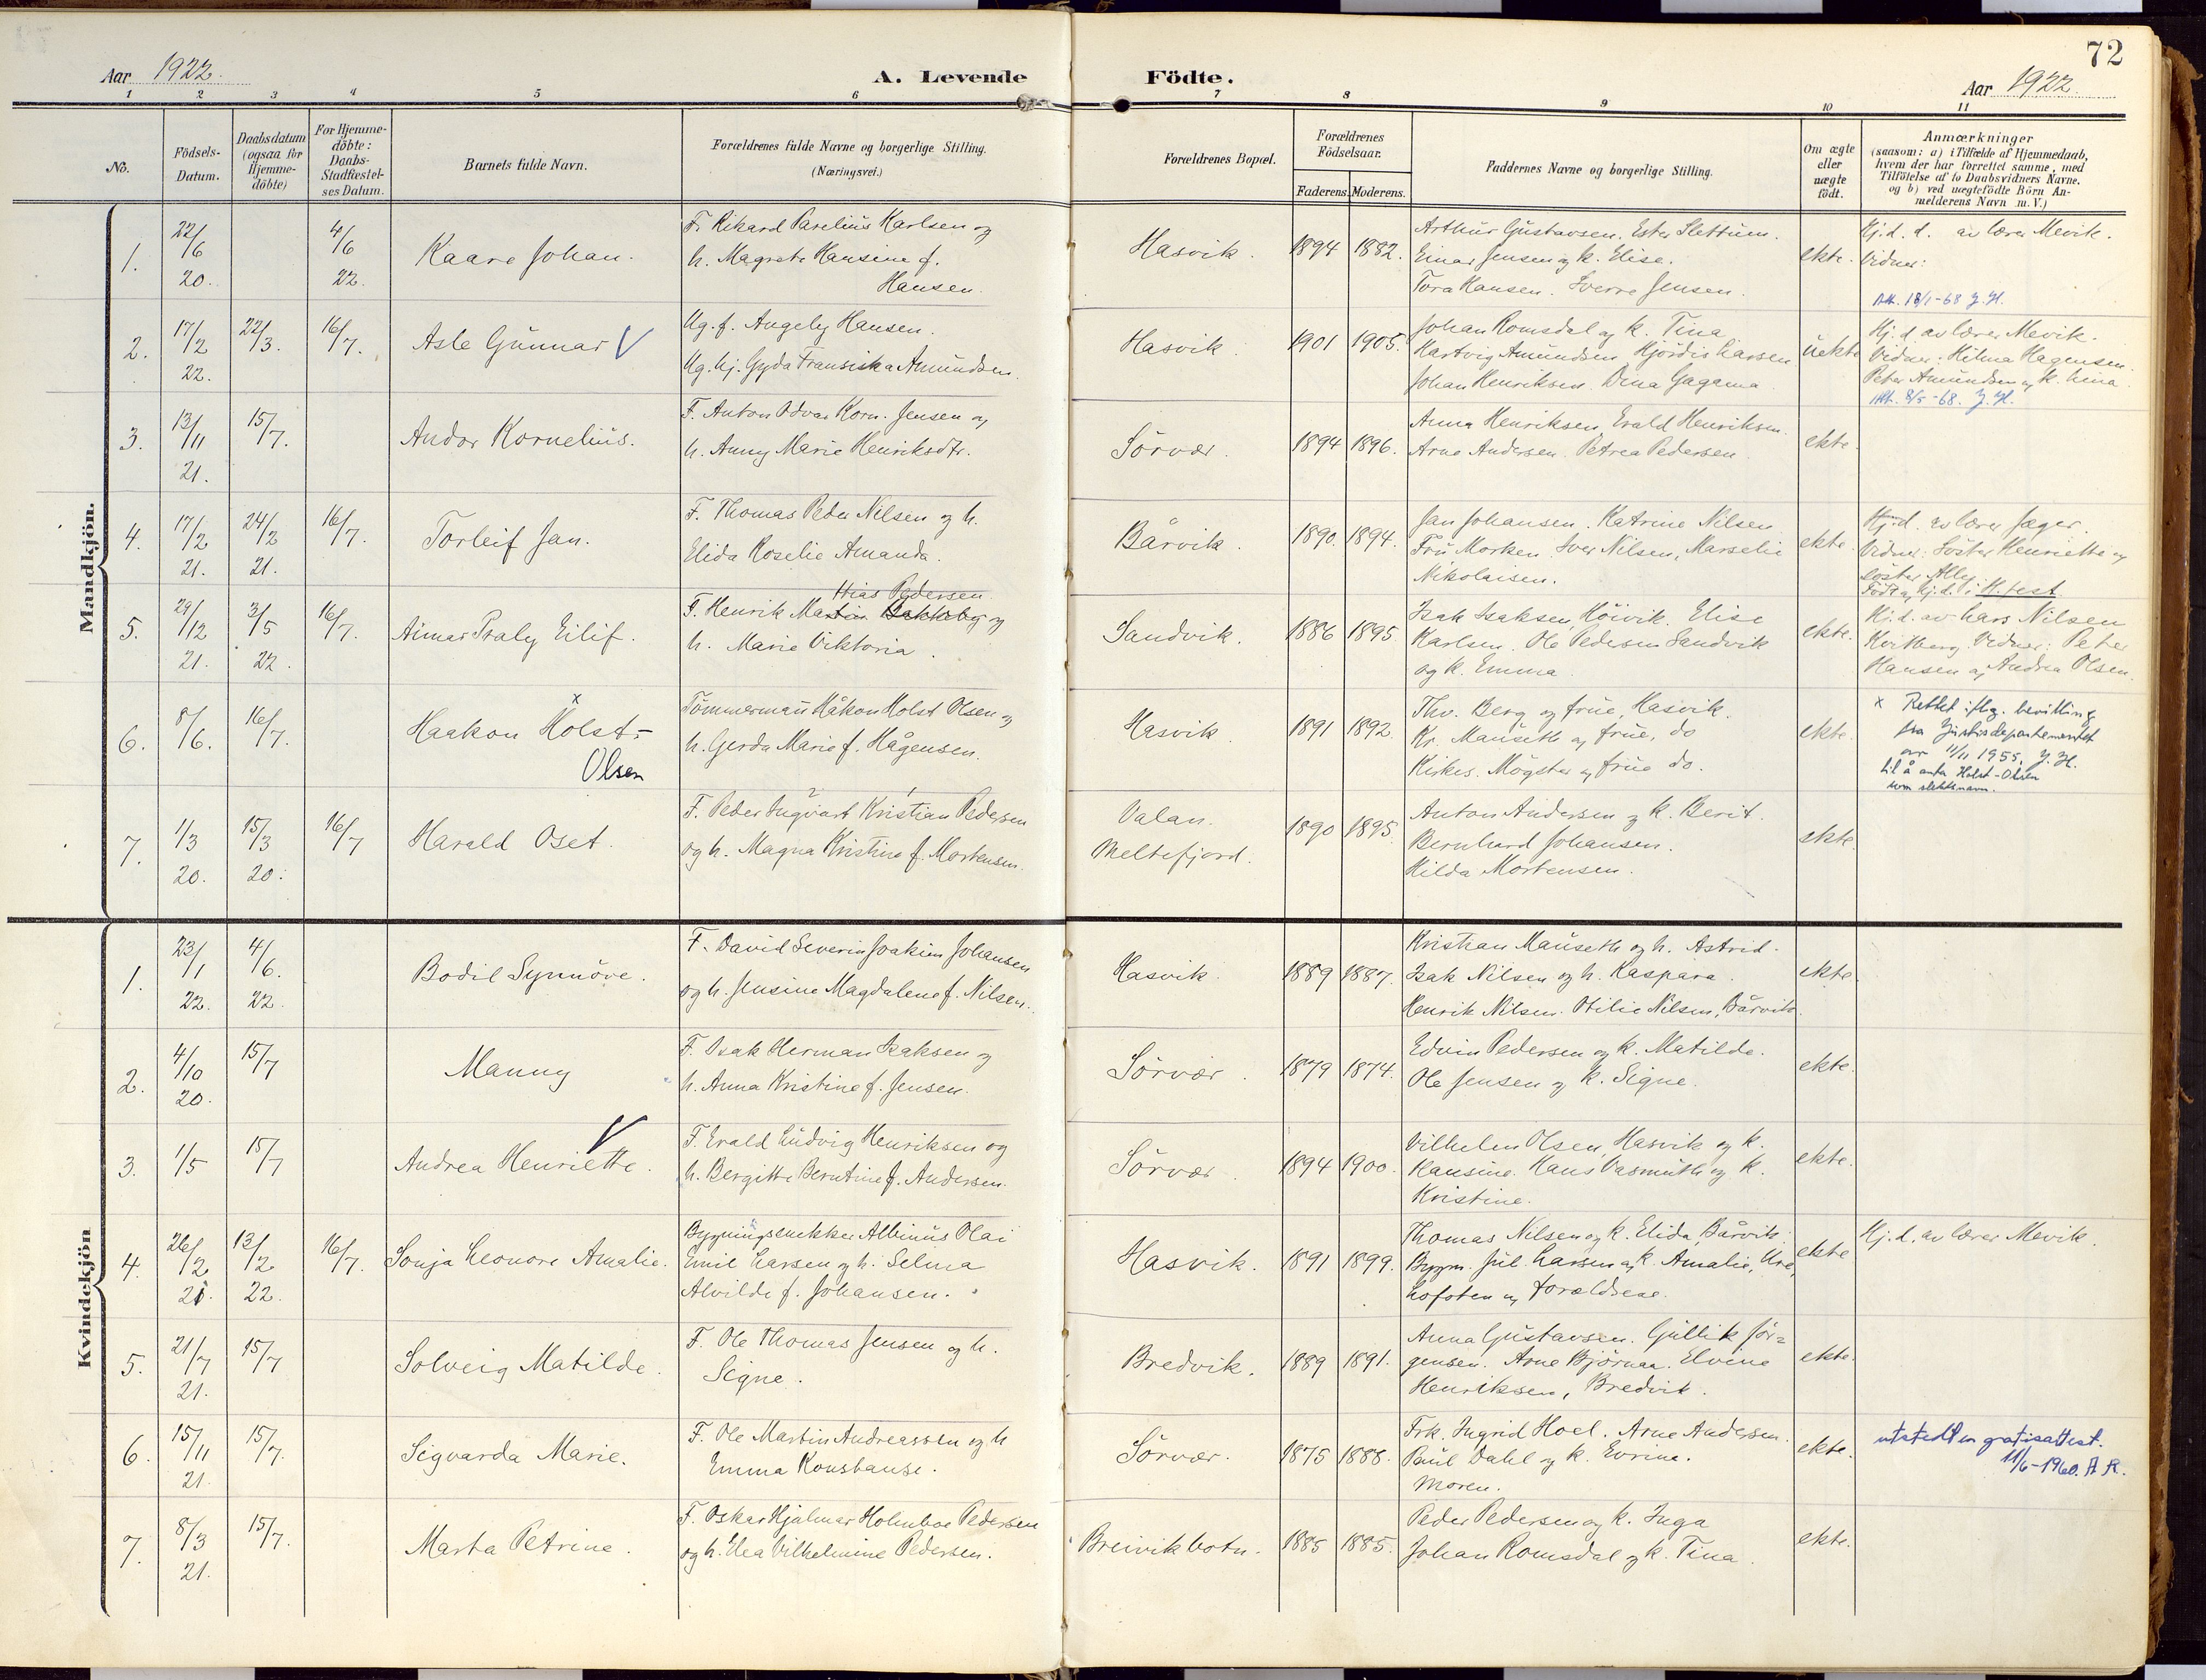 72
Aar 1922. A. Levende Födte. Aar 1922.
1 2 3 4 5 6 7 8 9 10 11
No.
Födsels-
Datum.
Daabsdatum
(ogsaa for
Hjemme-
döbte)
For Hjemme-
döbte:
Daabs-
Stadfæstel-
ses Datum.
Barnets fulde Navn.
Forældrenes fulde Navne og borgerlige Stilling.
(Næringsvei.)
Forældrenes Bopæl.
Forældrenes
Födselsaar.
Faderens. Moderens.
Faddernes Navne og borgerlige Stilling.
Om ægte
eller
uægte
födt.
Anmærkninger
(saasom: a) i Tilfælde af Hjemmedaab,
hvem der har forrettet samme, med
Tilföielse af to Daabsvidners Navne.
og b) ved uægtefödte Börn An-
melderens Navn m. V.)
Mandkjön.
1.
22/6
20.
4/6
22.
Kaare Johan.
F. Rikard Parelius Karlsen og
h. Magrete Hansine f.
Hansen.
Hasvik.
1894 1882.
Arthur Gustavsen. Ester Slettum.
Einar Jensen og k. Elise.
Tora Hansen. Sverre Jensen.
ekte.
Hj. d. d. av lærer Mevik.
Vidner:
Att. 18/1-68 J. H.
2.
17/2
22.
22/3.
16/7.
Asle Gunnar V
Ug. f. Angely Hansen.
Ug. hj. Gyda Fransiska Amundsen.
Hasvik
1901 1905.
Johan Romsdal og k. Tina
Hartvig Amundsen Hjördis Larsen
Johan Henriksen. Dina Gagama
uekte
Hj. d. av lærer Mevik.
Vidner: Hilma Hagensen.
Peter Amundsen og k. Lina
Att. 8/5-68. J. H.
3.
13/11
21.
15/7.
Andor Kornelius.
F. Anton Odvar Korn. Jensen og
h. Anny Marie Henriksdtr.
Sörvær.
1894 1896.
Anna Henriksen, Evald Henriksen.
Arne Andersen. Petrea Pedersen
ekte
4.
17/2
21.
24/2
21.
16/7.
Torleif Jan.
F. Thomas Peder Nilsen og h.
Elida Roselie Amanda.
Bårvik.
1890. 1894.
Jan Johansen. Katrine Nilsen
Fru Morken. Iver Nilsen, Marselie
Nikolaisen.
ekte.
Hj. d. av lærer Jæger.
Vidner: Söster Henriette og
söster Ally.
Födt og hj. d. i H.fest
5.
29/12
21.
3/5
22.
16/7.
Aimar Traly Eilif.
Hias Pedersen
F. Henrik Martin Bakkeby og
h. Marie Viktoria.
Sandvik.
1886 1895.
Isak Isaksen, Höivik. Elise
Karlsen. Ole Pedersen Sandvik
og k. Emma
ekte.
Hj. d. av Lars Nilsen
Kvitberg. Vidner: Peter
Hansen og Andrea Olsen.
6.
8/6.
16/7.
x
Haakon Holst-
Olsen
Tömmermann Håkon Holst Olsen og
h. Gerda Marie f. Hågensen.
Hasvik
1891 1892
Thv. Berg og frue, Hasvik.
Kr. Mauseth og frue, do
Kirkes. Mögster og frue do.
ekte.
x Rettet iflg. bevilling
fra Justisdepartementet
av 11/11 1955, J. H.
til å anta Holst-Olsen
som slektsnavn.
7.
1/3
20.
15/3
20.
16/7
Harald Oset.
F. Peder Ingvart Kristian Pedersen
og h. Magna Kristine f. Mortensen.
Valan.
Meltefjord.
1890 1895.
Anton Andersen og k. Berit.
Bernhard Johansen.
Hilda Mortensen.
ekte.
Kvindekjön
1.
23/1
22.
4/6.
22.
Bodil Synnöve.
F. David Severin Joakim Johansen
og h. Jensine Magdalene f. Nilsen.
Hasvik
1889 1887.
Kristian Mauseth og h. Astrid.
Isak Nilsen og h. Kaspara.
Henrik Nilsen. Otilie Nilsen, Bårvik.
ekte.
2.
4/10
20.
15/7
Manny
F. Isak Herman Isaksen og
h. Anna Kristine f. Jensen.
Sörvær.
1879 1874.
Edvin Pedersen og k. Matilde.
Ole Jensen og k. Signe.
ekte.
3.
1/5
15/7
V
Andrea Henriette.
F. Evald Ludvig Henriksen og
h. Bergitte Berntine f. Andersen.
Sörvær.
1894 1900.
Vilhelm Olsen, Hasvik og k.
Hansine. Hans Vasmuth og k.
Kristine.
ekte.
4.
26/2
21.
13/2
22.
16/7.
Sonja Leonore Amalie.
Bygningssnekker Albinus Olai
Emil Larsen og h. Selma
Alvilde f. Johansen.
Hasvik.
1891 1899.
Thomas Nilsen og k. Elida, Bårvik.
Bygm. Jul. Larsen og k. Amalie, Ure,
Lofoten og forældrene.
ekte
Hj. d. av lærer Mevik.
5.
21/7
21.
15/7
Solveig Matilde.
F. Ole Thomas Jensen og h.
Signe.
Bredvik.
1889 1891.
Anna Gustavsen. Gullik Jör=
gensen. Arne Björnaa. Elvine
Henriksen, Bredvik.
ekte.
6.
15/11
21.
15/7.
Sigvarda Marie.
F. Ole Martin Andreassen og h
Emma Konstanse.
Sörvær.
1875 1888.
Frk. Ingrid Hoel. Arne Andersen.
Paul Dahl og k. Evrine.
Moren.
ekte.
utstedt en gratisattest.
11/6-1960. A R.
7.
8/3
21.
15/7.
Marta Petrine.
F. Oskar Hjalmar Holmboe Pedersen
og h. Elea Vilhelmine Pedersen.
Breivikbotn.
1885 1885.
Peder Pedersen og k. Inga
Johan Romsdal og k. Tina.
ekte.